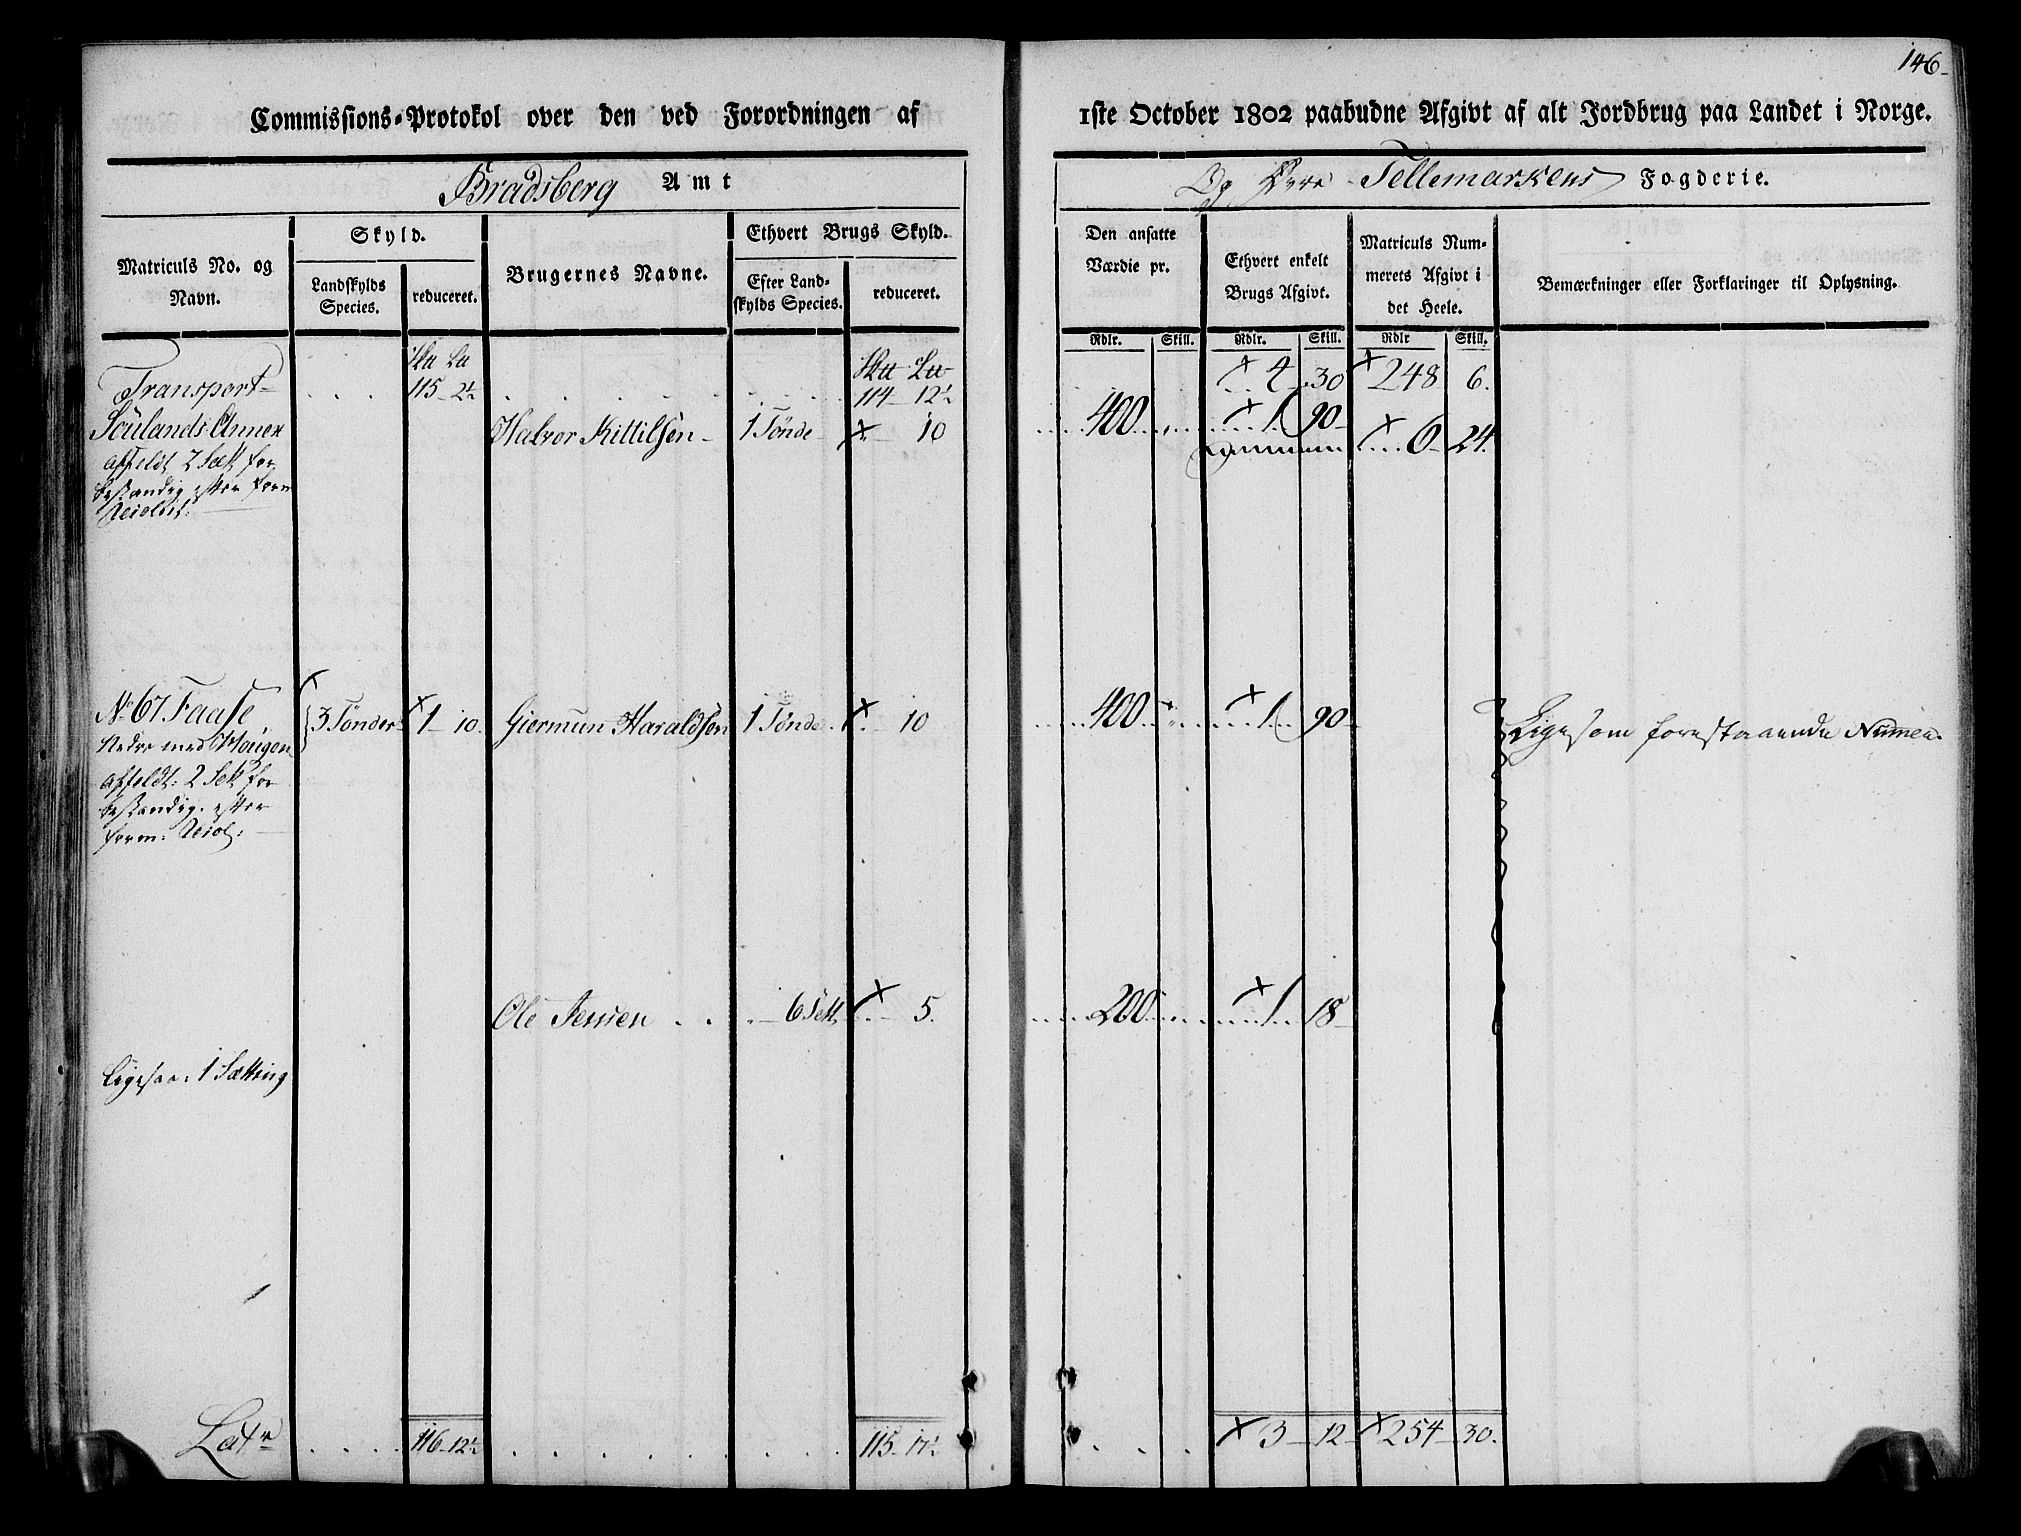 146
Commissions-Protokol over den ved Forordningen af
1ste October 1802 paabudne Afgivt af alt Jordbrug paa Landet i Norge.
Bradsberg Amt
Og Øvre Tellemarkens Fogderie.
Matriculs No. og Navn.
Skyld.
Landskylds Species.
reduceret.
Brugernes Navne.
Ethvert Brugs Skyld.
Efter Landskylds Species.
reduceret.
Den ansatte Værdie pr.
Ethvert enkelt Brugs Afgivt.
Matriculs Nummerets Afgivt i det Heele.
Bemærkninger eller Forklaringer til Oplysning.
Rdlr. Skill. Rdlr. Skill. Rdlr Skill.
Transport 115 2½ 114 12½ 4 30 248 6.
Annex Halvor Kittilsen 1 Tønde 10 400 1 90 6 24.
affeldt 2 Sett for
bestandig efter form
No 67 Faase 3 Tønder 1 10. Giermun Haraldsen 1 Tønde 10 400 1 90 Ligesom forestaaende Numer.
Nedre med Hougen
affeldt: 2 Sett for
bestandig. efter
form:
Ole Jensen 6 Sett 5. 200 1 18
Ligesaa: 1 Sætting
Latr 116 12½ 115 17½ 3 12 254 30.